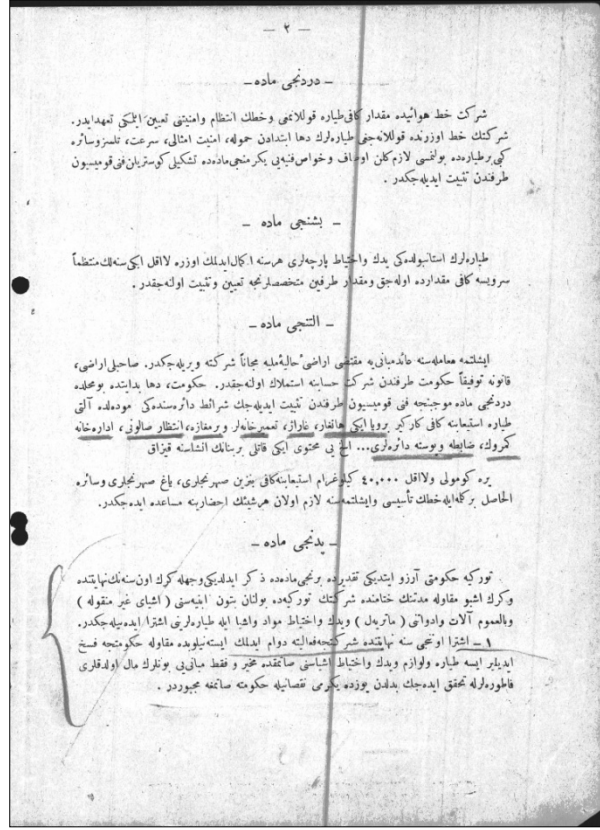 — ٢ —
— دردنجی ماده —
شركت خط هوائیده مقدار كافی طیاره قوللانمغی و خطك انتظام و امنیتنی تعیین ایلمكی تعهد ایدر.
شركتك خط اوزرنده قوللانه جغی طیاره لرك دها ابتدادن حموله، امنیت امثالی، سرعت، تلسز وسائره
كبی بر طیاره ده بولنمسی لازم كلن اوصاف و خواص فنیه یی یكرمنجی ماده ده تشكیلی كوستریلن فنی قومیسیون
طرفندن تثبیت ایدیله جكدر.
— بشنجی ماده —
طیاره لرك استانبولده كی یدك واحتیاط پارچه لری هر سنه اكمال ایدلمك اوزره لااقل ایكی سنه لك منتظماً
سرویسه كافی مقدارده اوله جق و مقدار طرفین متخصصلرنجه تعیین و تثبیت اولنه جقدر.
— التنجی ماده —
ایشلتمه معامله سنه عائد مبانی یه مقتضی اراضیٔ خالیهٔ ملیه مجاناً شركته ویریله جكدر. صاحبلی اراضی،
قانونه توفیقاً حكومت طرفندن شركت حسابنه استملاك اولنه جقدر. حكومت، دها بدایتده بو محلده
دردنجی ماده موجبنجه فنی قومیسیون طرفندن تثبیت ایدیله جك شرائط دائره سنده كی موده لده آلتی
طیاره استیعابنه كافی كارگیر برویا ایكی هانغار، غاراژ، تعمیرخانه لر و برمغازه، انتظار صالونی، اداره خانه
كمروك، ضابطه و پوسته دائره لری... الخ یی محتوی ایكی قاتلی بر بنانك انشاسنه
یره كومولی ولااقل ٤٠,٠٠٠ كیلوغرام استیعابنه كافی بنزین صهرنجلری، یاغ صهرنجلری وسائره
الحاصل بر كلمه ایله خطك تأسیسی وایشلتمه سنه لازم اولان هر شیئك احضارینه مساعده ایده جكدر.
— یدنجی ماده —
توركیه حكومتی آرزو ایتدیكی تقدیرده برنجی ماده ده ذكر ایدلدیكی وجهله كرك اون سنه نك نهایتنده
وكرك اشبو مقاوله مدتنك ختامنده شركتك توركیه ده بولنان بتون ابنیه سنی ( اشیای غیر منقوله )
وبالعموم آلات وادواتی ( ماتریه ل ) ویدك واحتیاط مواد واشیا ایله طیاره لرینی اشترا ایده بیله جكدر.
١ — اشترا اوننجی سنه نهایتنده شركتجه فعالیته دوام ایدلمك ایسته نیلوبده مقاوله حكومتجه فسخ
ایدیلیر ایسه طیاره ولوازم ویدك واحتیاط اشیاسنی صاتمقده مخیر و فقط مبانی یی بونلرك مال اولدقلری
فاطوره لرله تحقق ایده جك بدلدن یوزده یكرمی نقصانیله حكومته صاتمغه مجبوردر.